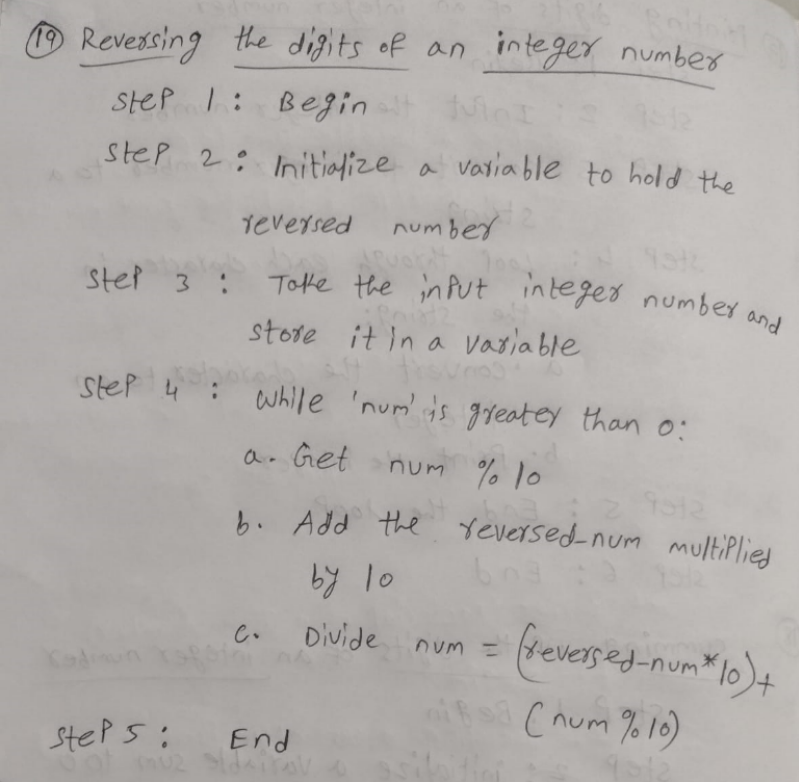 19 Reversing the digits of an integer number
Step 1 : Begin
Step 2 : Initialize a variable to hold the
reversed number
Step 3 : Take the input integer number and
store it in a variable
Step 4 : While 'num' is greater than 0:
a. Get num % 10
b. Add the reversed_num multiplied
by 10
c. Divide num = (reversed_num*10)+
(num%10)
Step 5 : End